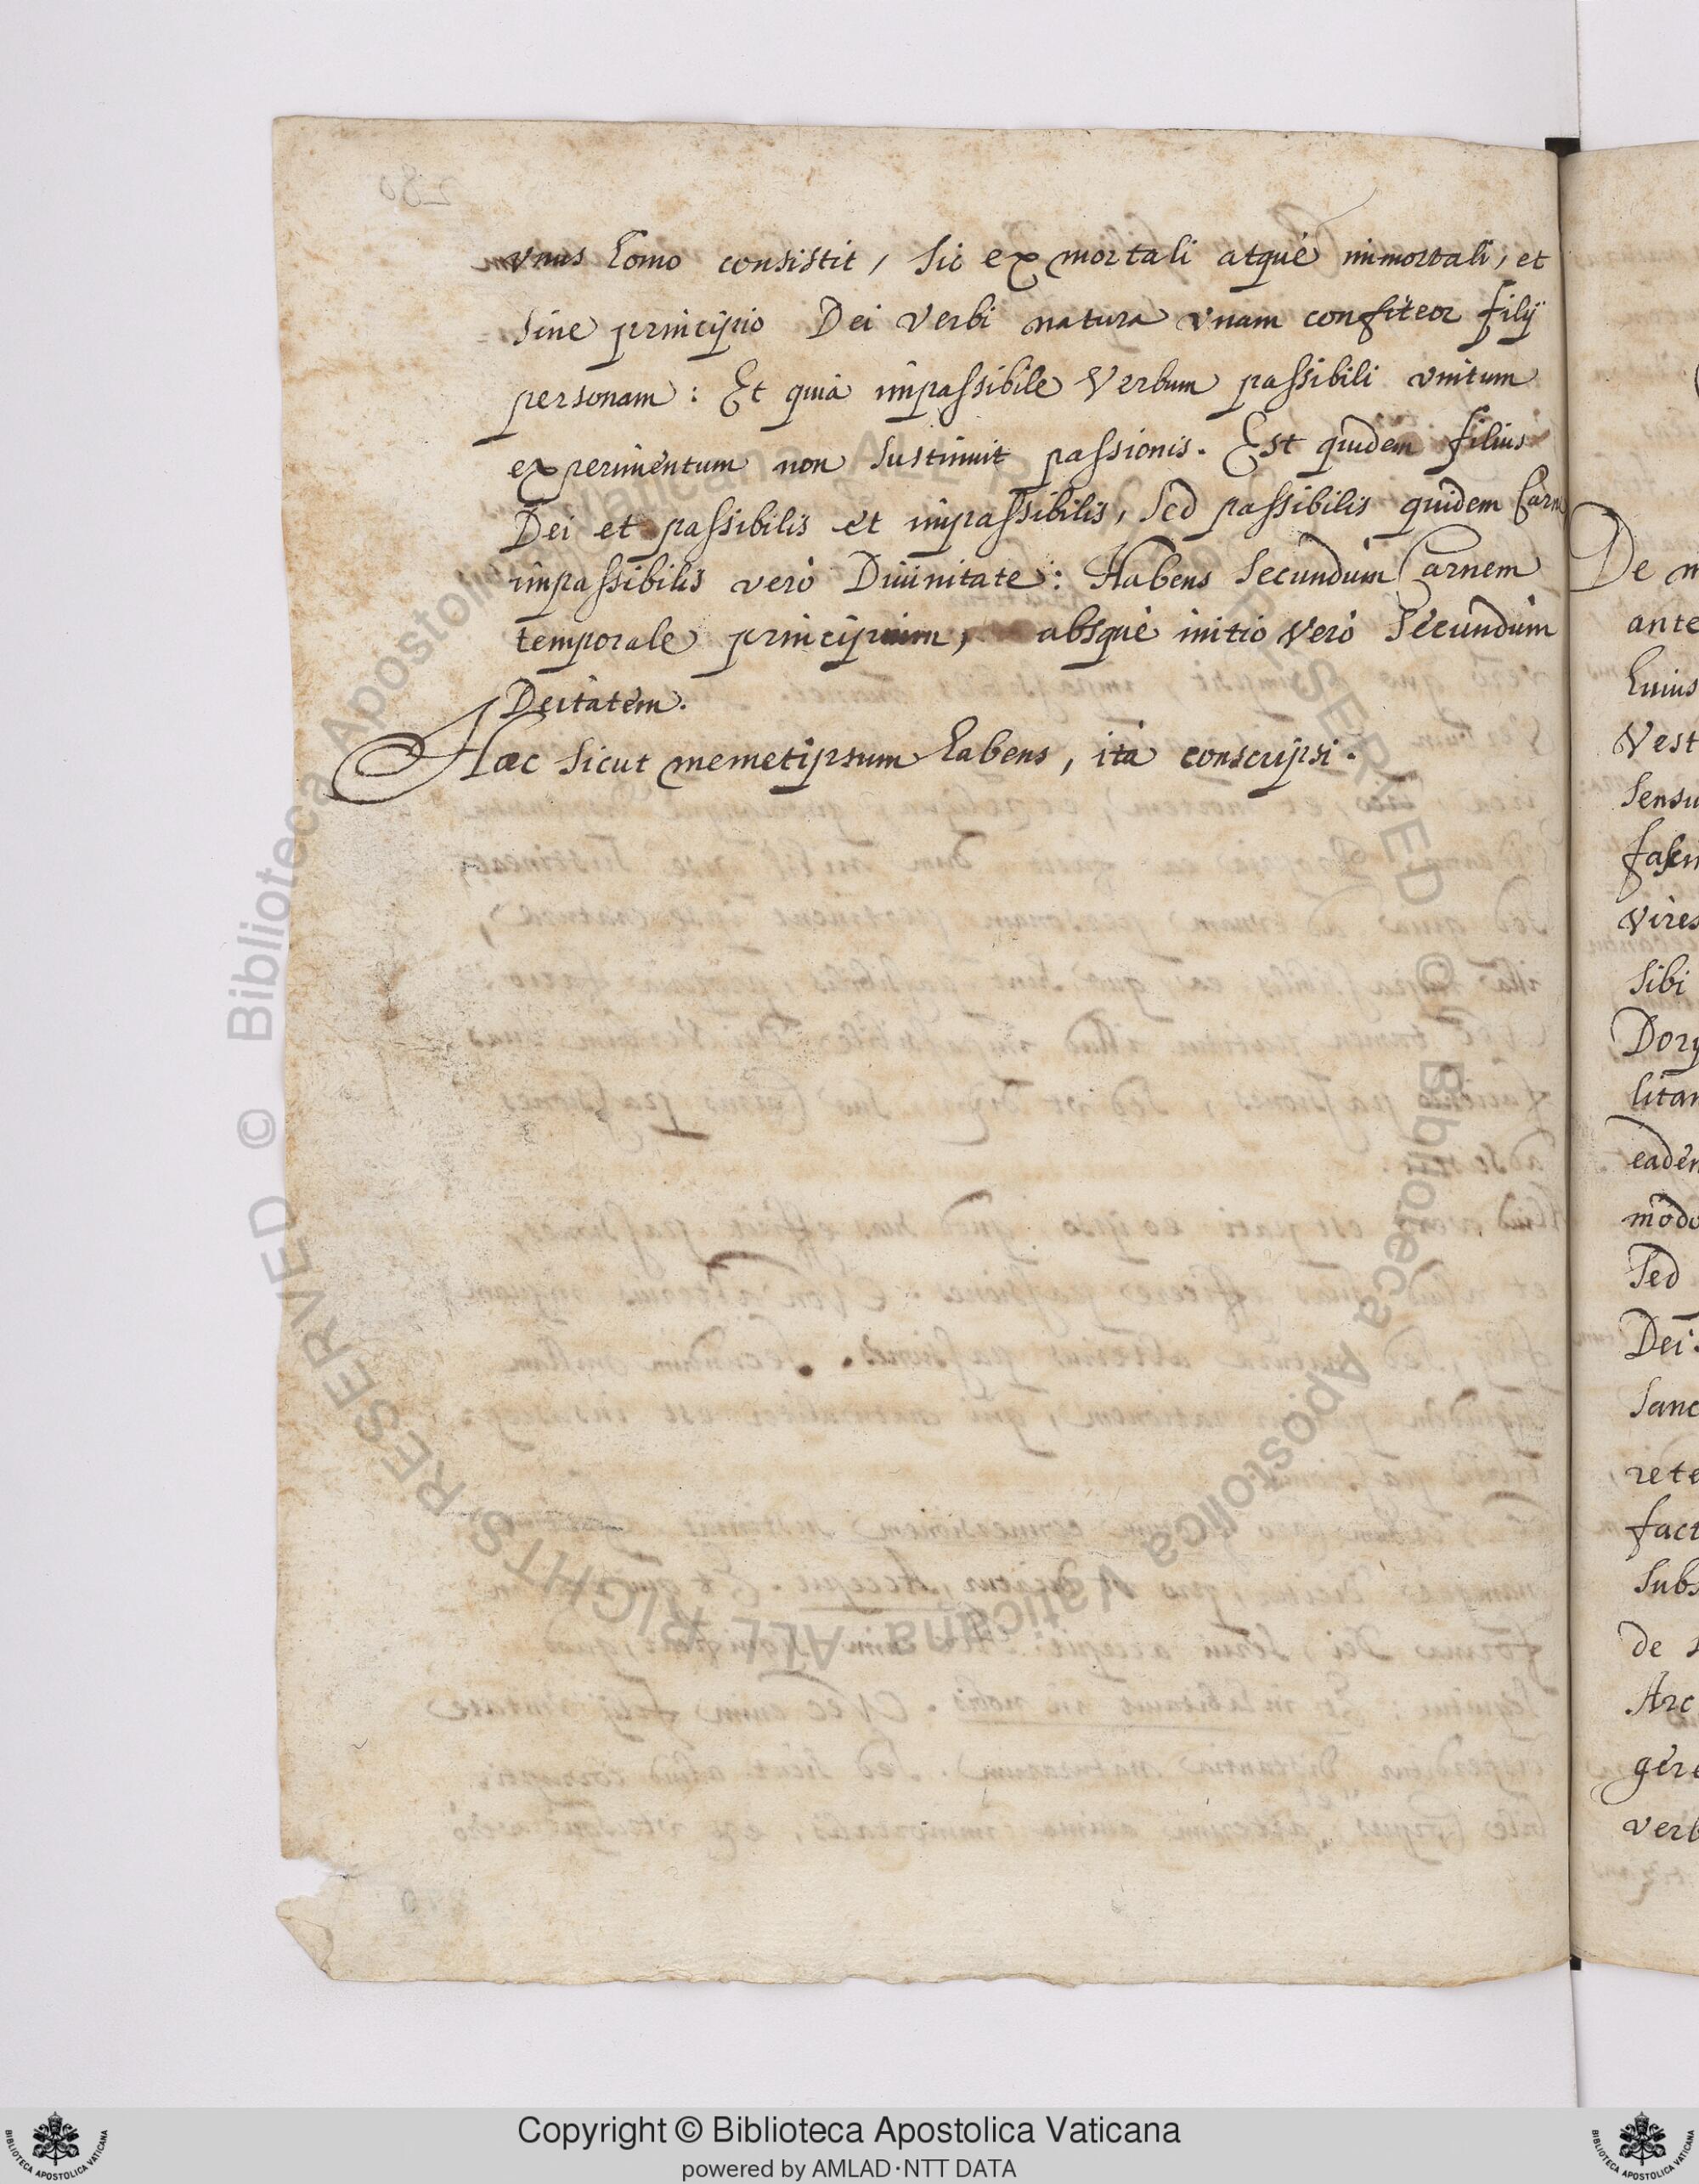 vnus homo consistit, sic ex mortali atque immortali, et
sine principio Dei Verbi natura vnam confiteor filij
personam: Et quia impassibile Verbum passibili vnitum
experimentum non sustinuit passionis. Est quidem filius
Dei et passibilis et impassibilis, sed passibilis quidem Carn
impassibilis verò Diuinitate: Habens secundùm Carnem
temporale principium, absque initio verò secundùm
Deitatem.
Hæc sicut memetipsum habens, ità conscripsi.
De m
ante
huius
Vest
sensu
vires
sibi
Dory
litan
eaden
modo
Sed
Dei:
Sanc
rete
fact
subs
de s
Arc
gere
verb
© Biblioteca Apostolica Vaticana ALL RIGHTS RESERVED
Copyright © Biblioteca Apostolica Vaticana
powered by AMLAD·NTT DATA
BIBLIOTECA APOSTOLICA VATICANA
BIBLIOTECA APOSTOLICA VATICANA